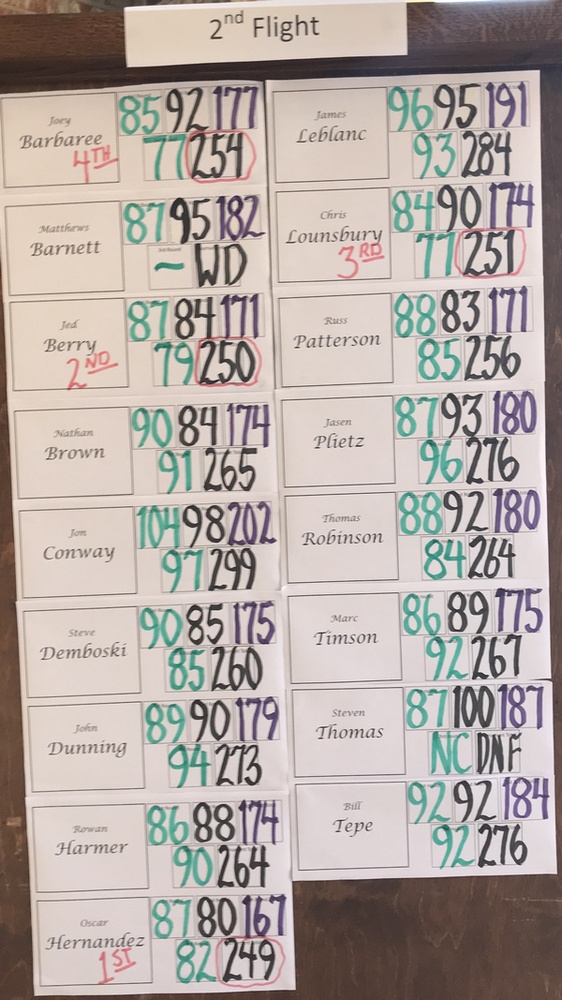 2nd Flight
Joey
Barbaree
4TH
85 92 177
77 254
Matthews
Barnett
87 95 182
- WD
Jed
Berry
2ND
87 84 171
79 250
Nathan
Brown
90 84 174
91 265
Jon
Conway
104 98 202
97 299
Steve
Demboski
90 85 175
85 260
John
Dunning
89 90 179
94 273
Rowan
Harmer
86 88 174
90 264
Oscar
Hernandez
1ST
87 80 167
82 249
James
Leblanc
96 95 191
93 284
Chris
Lounsbury
3RD
84 90 174
77 251
Russ
Patterson
88 83 171
85 256
Jasen
Plietz
87 93 180
96 276
Thomas
Robinson
88 92 180
84 264
Marc
Timson
86 89 175
92 267
Steven
Thomas
87 100 187
NC DNF
Bill
Tepe
92 92 184
92 276